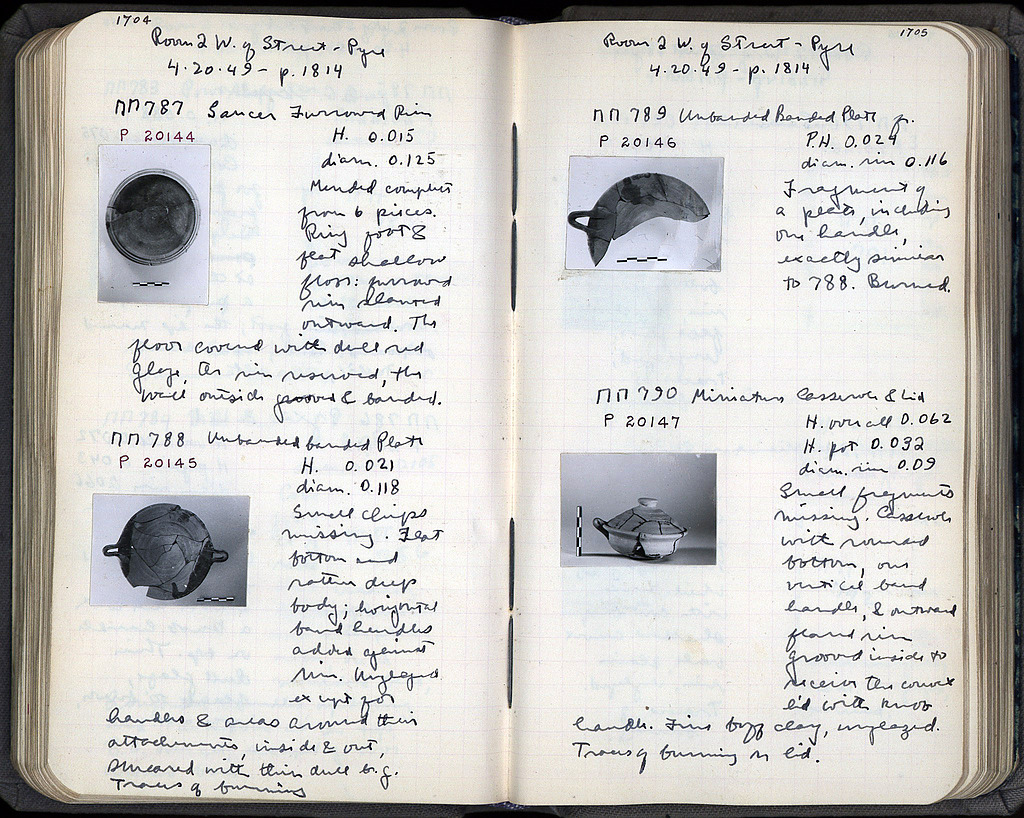 1704
Room 2 W. of Street - Pyre
4.20.49 - p. 1814
ΠΠ 787 Saucer Furrowed Rim
P 20144
H. 0.015
diam. 0.125
Mended complete
from 6 pieces.
Ring foot &
flat shallow
floor: furrowed
rim slanted
outward. The
floor covered with dull red
glaze, the rim reserved, the
wall outside grooved & banded.
ΠΠ 788 Unbanded banded Plate
P 20145
H. 0.021
diam. 0.118
Small chips
missing. Flat
bottom and
rather deep
body; horizontal
band handles
added against
rim. Unglazed
except for
handles & areas around their
attachments, inside & out,
smeared with thin dull b.g.
Traces of burning
1705
Room 2 W. of Street - Pyre
4.20.49 - p. 1814
ΠΠ 789 Unbanded Banded Plate fr.
P 20146
P.H. 0.024
diam. rim 0.116
Fragment of
a plate, including
one handle,
exactly similar
to 788. Burned.
ΠΠ 790 Miniature Casserole & Lid
P 20147
H. overall 0.062
H. pot 0.032
diam. rim 0.09
Small fragments
missing. Casserole
with round
bottom, one
vertical band
handle, & outward
flared rim
grooved inside to
receive the convex
lid with knob
handle. Fine buff clay, unglazed.
Traces of burning on lid.